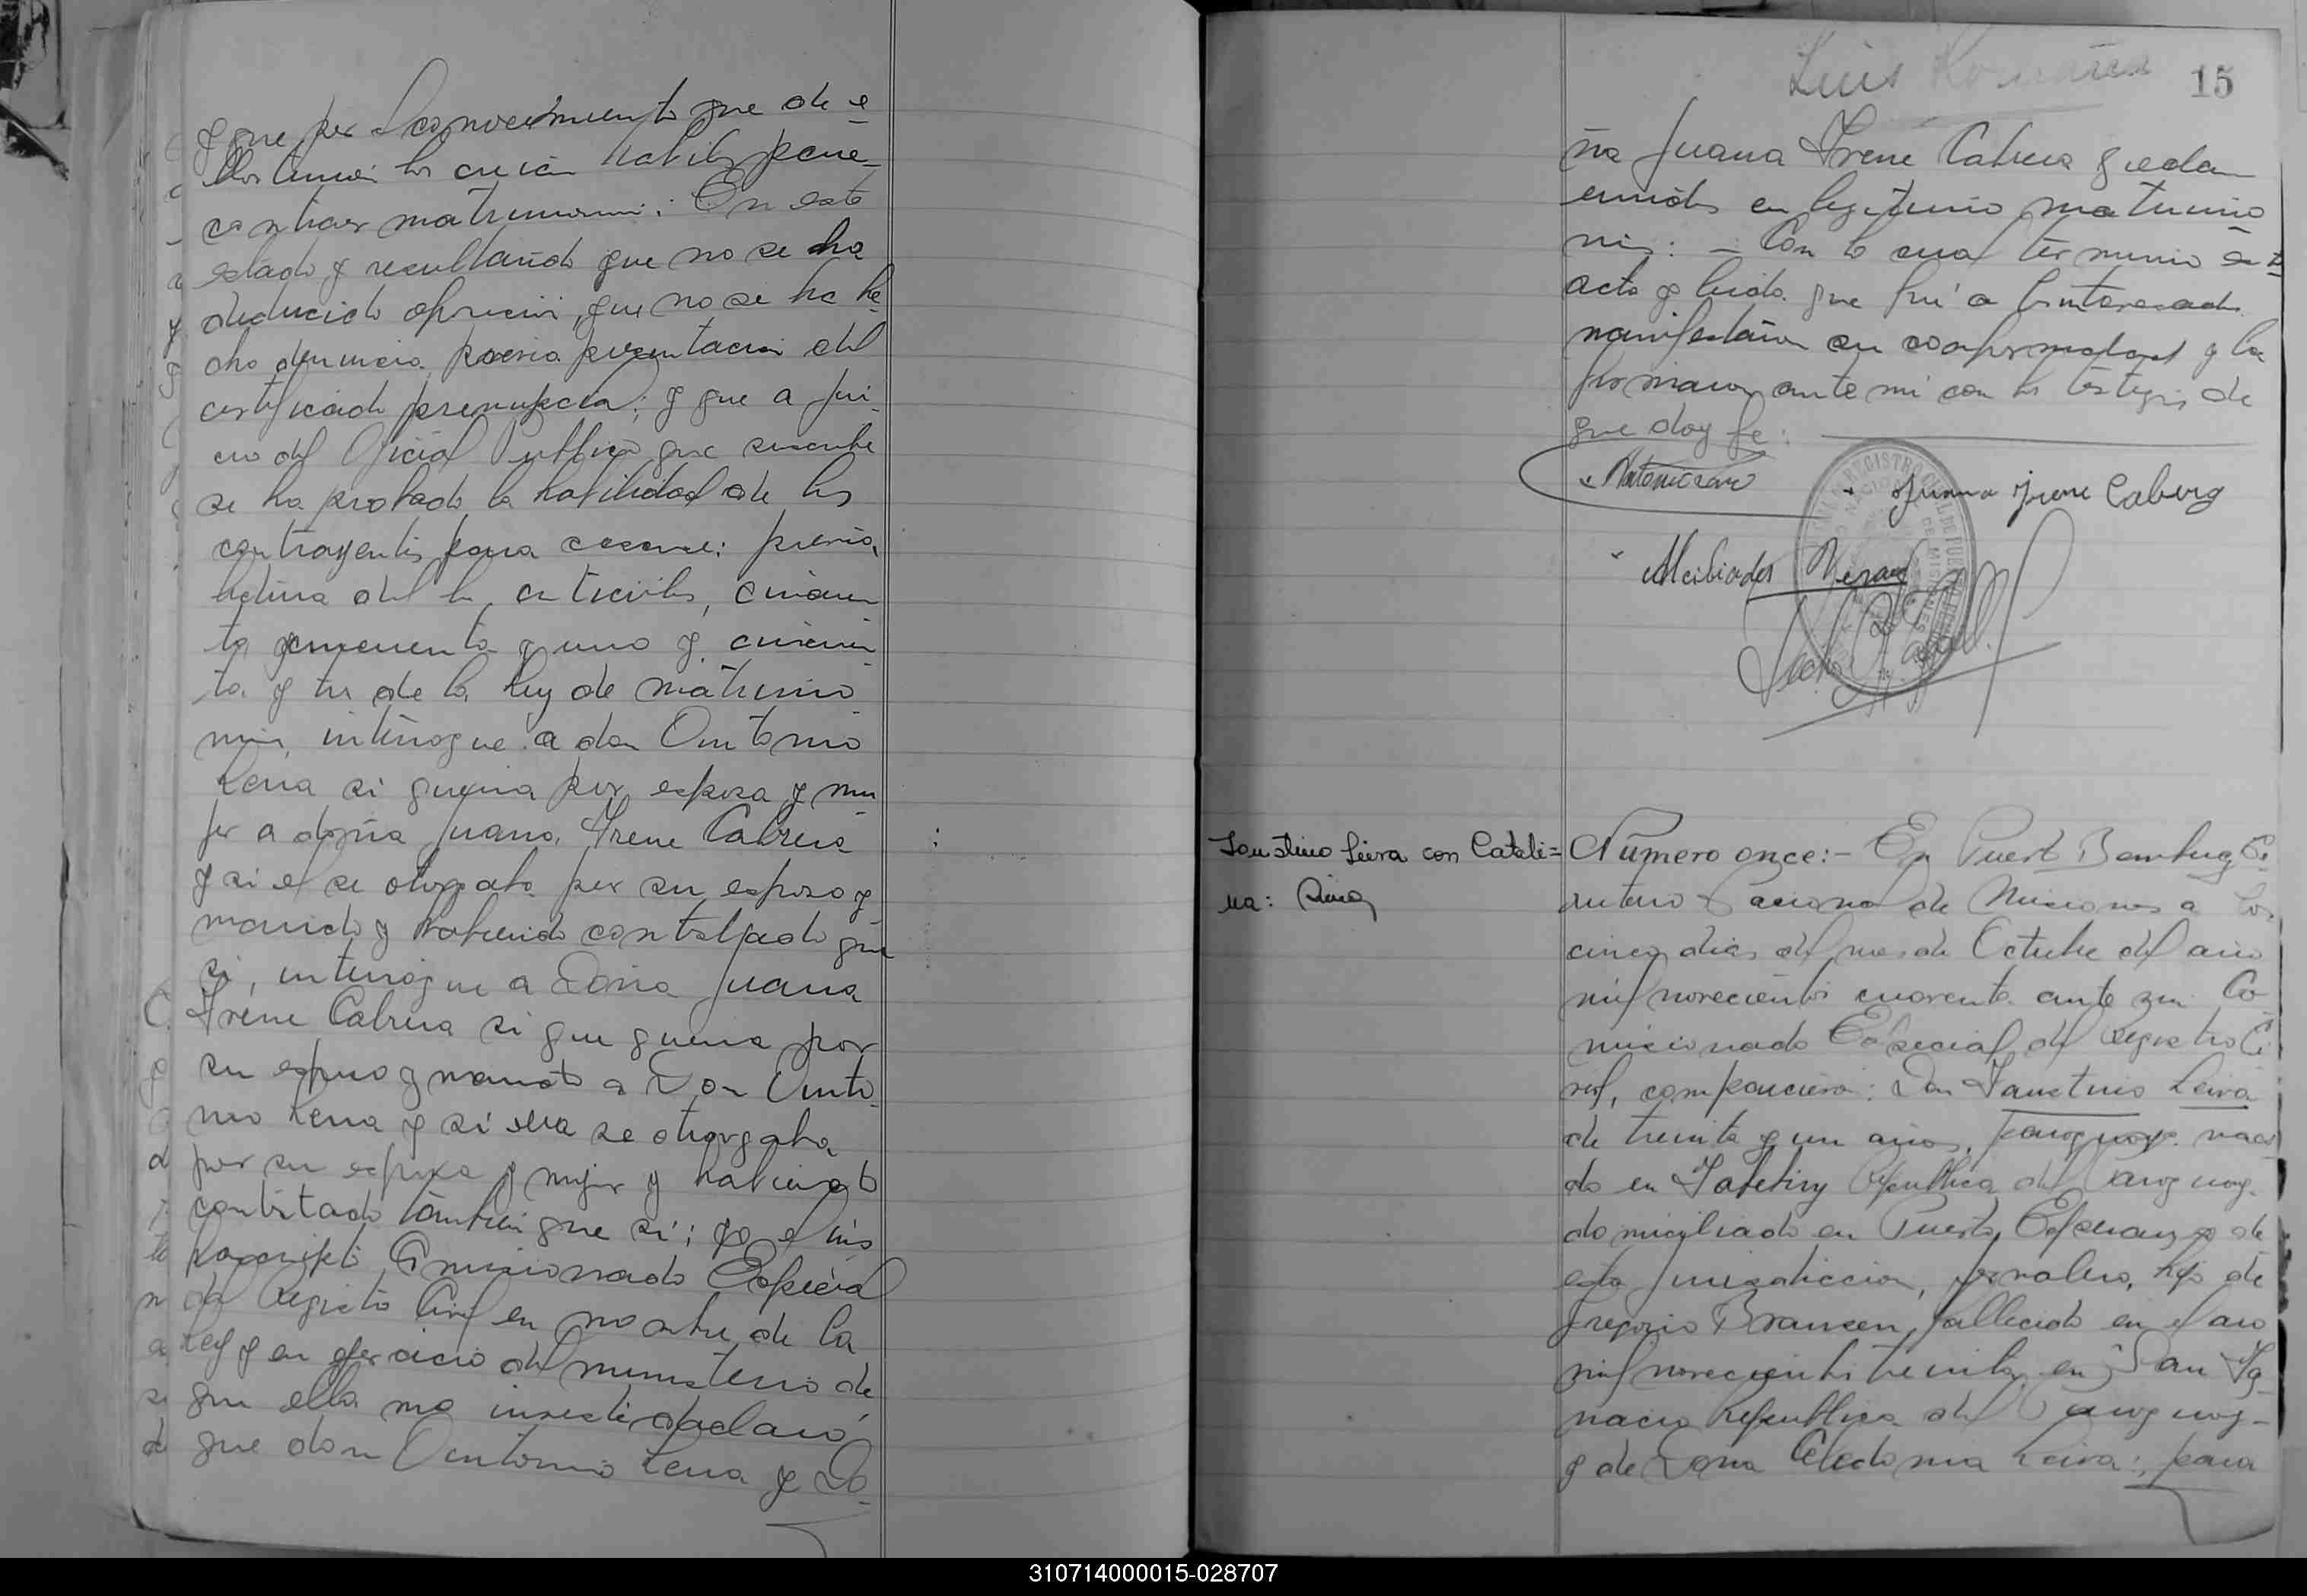 y que por el conocimiento que de e
llos tienen los creian habiles para
contraer matrimonio: En este
estado y resultando que no se ha
deducido oposicion, que no se ha he
cho denuncia, previa presentacion del
certificado prenupcial; y que a jui
cio del Oficial Publico que suscribe
se ha probado la habilidad de los
contrayentes para casarse: previa
lectura de los articulos, cincuen
ta cincuenta y uno y cincuen
ta y tres de la Ley de matrimo
nio, interrogue a don Antonio
si queria por esposa y mu
jer a doña Juana Irene Cabrera
y si el se otorgaba por su esposo y
marido y habiendo contestado que
si, interrogue a Doña Juana
Irene Cabrera si que queria por
su esposo y marido a Don Anto
nio y si ella se otorgaba
por su esposa y mujer y habiendo
contestado tambien que si; yo el ins
Comisionado Especial
del Registro Civil en nombre de la
Ley y en ejercicio del ministerio de
que ella me inviste declaro
que don Antonio y Do
Luis
15
ña Juana Irene Cabrera quedan
unidos en legitimo matrimo
nio: - Con lo cual termino este
acto y leida que fué a los interesados
manifestaron su conformidad y la
firmaron ante mi con los testigos, de
que doy fe:
Juana Irene Cabrera
Alcibiades
Faustino Leiva con Catali=
na:
Número once:- En Puerto Bemberg Te
rritorio Nacional de Misiones a los
cinco dias del mes de Octubre del año
mil novecientos cuarenta ante mi Co
misionado Especial del Registro Ci
vil, comparecieron: Don Faustino Leiva
de treinta y un años, paraguayo naci
do en Republica del Paraguay
domiciliado en Puerto Esperanza de
esta jurisdiccion, jornalero, hijo de
Gregorio fallecido en el año
mil novecientos treinta en San Ig
nacio Republica del Paraguay
y de Doña Celedonia Leiva; para
310714000015-028707